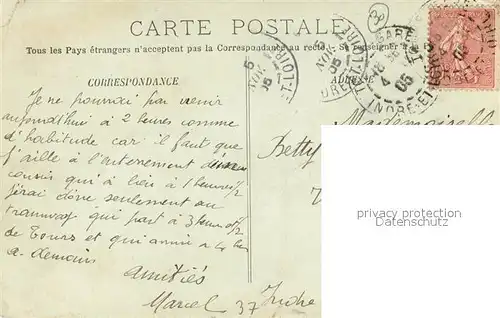 CARTE POSTALE
Tous les Pays étrangers n'acceptent pas la Correspondance au recto. Se renseigner à la
CORRESPONDANCE
Je ne pourrai pas venir
aujourd'hui à 2 heures comme
d'habitude car il faut que
j'aille à l'enterrement d'un
cousin qui à lieu à 1 heure 1/2
j'irai donc seulement au
tramway qui part à 3 heures 1/2
de Tours et qui arrive à 4 h
a-demain
amitiés
Marcel
37 Indre
3
GARE
05
INDRE-ET-LOIRE
Mademoiselle
Betty
privacy protection
Datenschutz